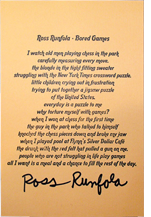 Ross Runfola - Bored Games
I watch old men playing chess in the park
carefully measuring every move.
the blonde in the tight fitting sweater
struggling with the New York Times crossword puzzle.
little children crying out in frustration
trying to put together a jigsaw puzzle
of the United States.
everyday is a puzzle to me
why torture myself with games?
when I was at chess for the first time
the guy in the park who talked to himself
knocked the chess pieces down and broke my jaw
when I played pool at Flynn's Silver Dollar Café
the drunk with the red felt hat pulled a gun on me.
people who are not struggling in life play games
all I want is a meal and a chance to fill up the rest of the day.
Ross Runfola